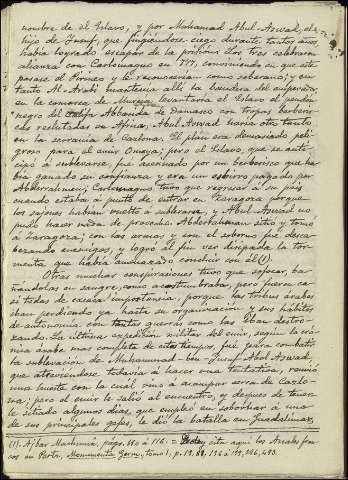 nombre de el Eslavo, y por Mohamad Abul-Aswad, el
hijo de Yusuf, que fingiéndose ciego durante tantos años
había logrado escapar de la prisión. Los tres celebraron
alianza con Carlomagno en 777, conviniendo en que este
pasase el Pirineo y le reconocerían como soberano; y en
tanto Al-Arabí mantenía allí la bandera del emperador,
en la comarca de Murcia levantaría el Eslavo el pendón
negro del califa Abbasida de Damasco con tropas berberis-
cas reclutadas en Africa; Abul-Aswad haría otro tanto
en la serranía de Cazlona. El plan era demasiado peli-
groso para el emir Omeya; pero el Eslavo, que se anti-
cipó a sublevarse, fué asesinado por un berberisco que ha-
bía ganado su confianza y era un esbirro pagado por
Abderrahmen; Carlomagno tuvo que regresar a su país
cuando estaba á punto de entrar en Zaragoza porque
los sajones habían vuelto á sublevarse, y Abul-Aswad no
pudo hacer nada de provecho. Abderrahman sitió y tomó
á Zaragoza; con las armas y con el soborno fué desem-
barazando enemigos, y logró al fin ver disipada la tor-
menta que había amenazado concluir con él (1).
Otras muchas conspiraciones tuvo que sofocar, ba-
ñándolas en sangre, como acostumbraba, pero fueron ca-
si todas de escasa importancia, porque las tribus árabes
iban perdiendo ya hasta su organización y sus hábitos
de autonomía con tantas guerras como las iban destro-
zando. La última expedición militar del emir, según la cró-
nica árabe más completa de estos tiempos, fué para combatir
la sublevación de Muhammad-ben-Yusuf-Abul Aswad,
que atreviéndose todavía á hacer una tentativa, reunió
una hueste con la cual vino á acampar cerca de Cazlo-
na; pero el emir le salió al encuentro, y despues de tener-
le sitiado algunos días, que empleó en sobornar á uno
de sus principales gefes, le dió la batalla en Guadalimar,
(1). Ajbar Machmuâ, págs. 110 á 116. = esta aquí los Anales fran-
cos en Pertz, Monumenta Germ., tomo 1, p. 19,